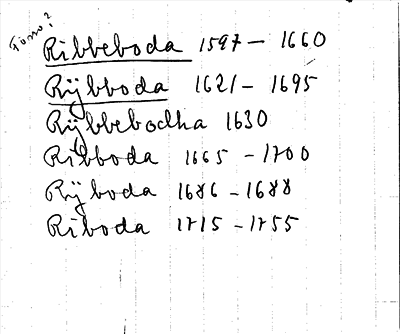 Ribbeboda 1597 – 1660
Rÿbboda 1621 – 1695
Rÿbbebodha 1630
Ribboda 1665 – 1700
Rÿboda 1686 – 1688
Riboda 1715 – 1755